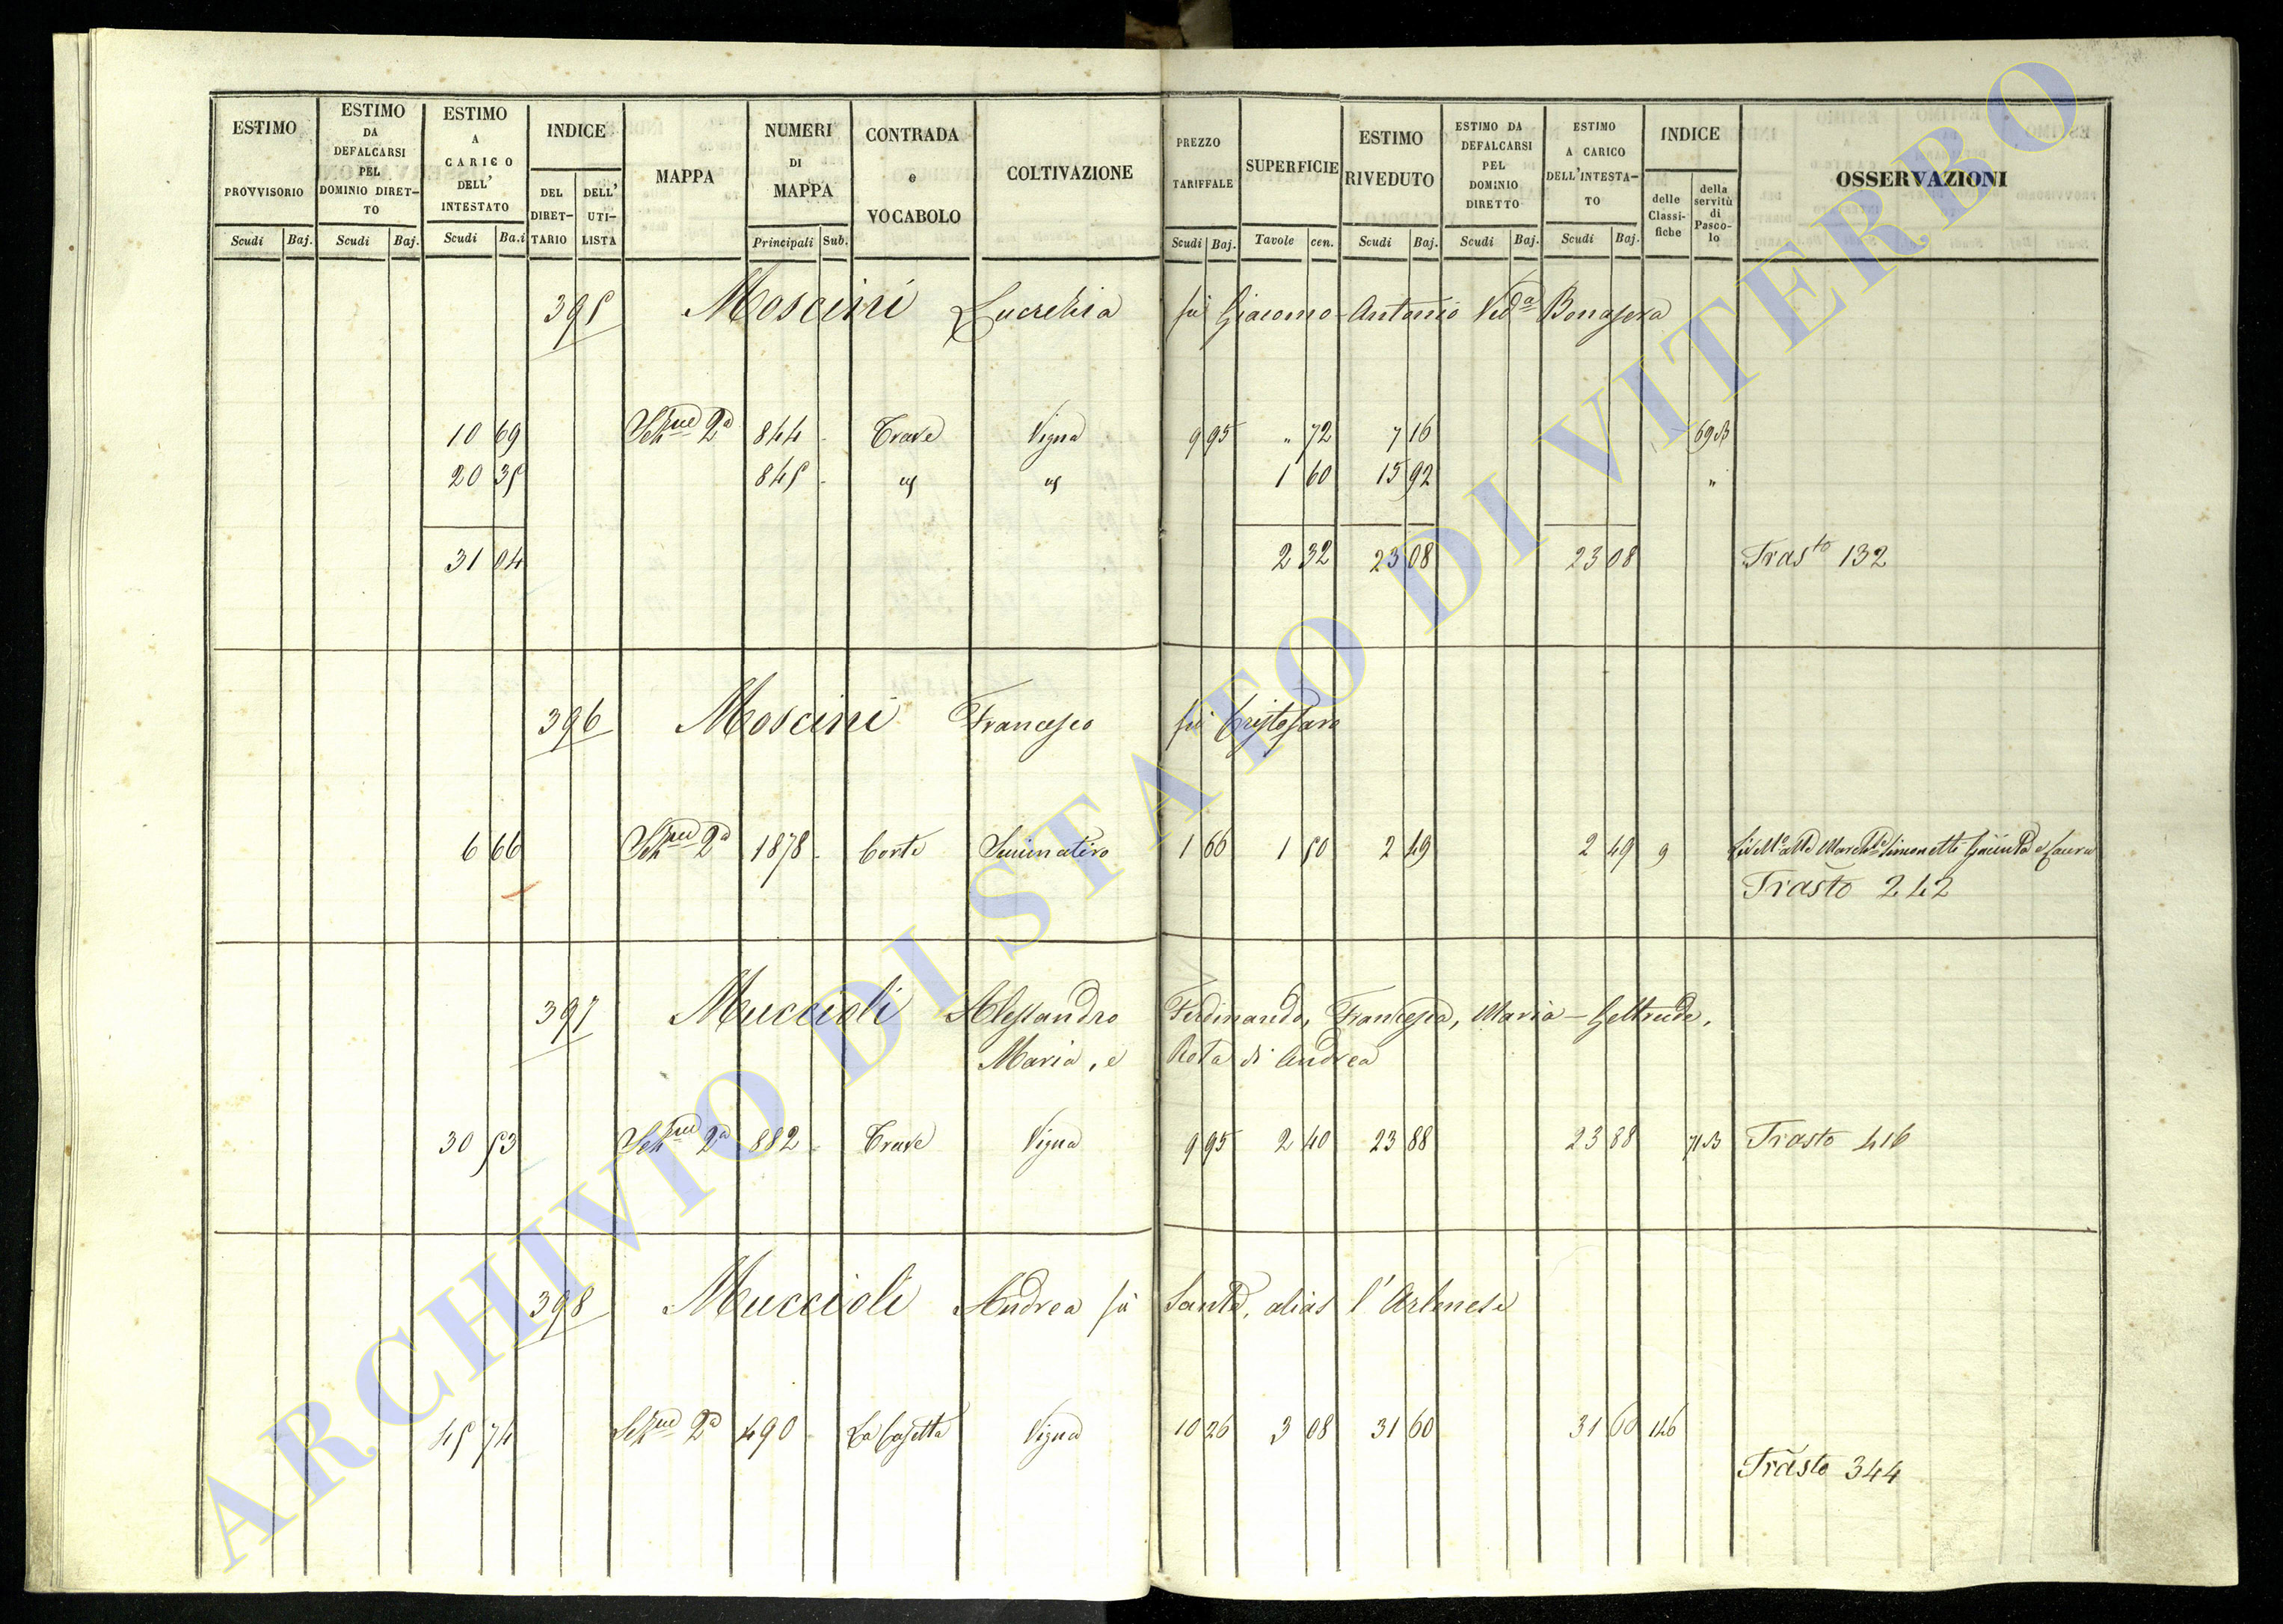 ESTIMO PROVVISORIO
ESTIMO DA DEFALCARSI PEL DOMINIO DIRET-TO
ESTIMO A CARICO DELL' INTESTATO
INDICE
DEL DIRET-TARIO
DELL' UTI-LISTA
MAPPA
NUMERI DI MAPPA
CONTRADA e VOCABOLO
COLTIVAZIONE
PREZZO TARIFFALE
SUPERFICIE
ESTIMO RIVEDUTO
ESTIMO DA DEFALCARSI PEL DOMINIO DIRETTO
ESTIMO A CARICO DELL'INTESTA-TO
INDICE
delle Classi-fiche
della servitù di Pasco-lo
OSSERVAZIONI
Scudi Baj. Scudi Baj. Scudi Ba.i Principali Sub. Scudi Baj. Tavole cen. Scudi Baj. Scudi Baj. Scudi Baj.
395 Moscini Lucrezia fù Giacomo-Antonio Ved.a Bonasera
10 69 2a 844 Trave Vigna 9 95 " 72 7 16 69
20 35 845 1 60 15 92 "
31 04 2 32 23 08 23 08 Trasto 132
396 Moscini Francesco fù Cristofaro
6 66 2a 1878 Corte Seminativo 1 66 1 50 2 49 2 49 9 Simonetti
Trasto 242
397 Muccioli Alessandro Ferdinando, Francesca, Maria-Geltrude,
Maria, e Rosa di Andrea
30 53 2a 882 Trave Vigna 9 95 2 40 23 88 23 88 71 Trasto 416
398 Muccioli Andrea fù Sante, alias l'
45 74 2a 490 La Casetta Vigna 10 26 3 08 31 60 31 60 146
Trasto 344
ARCHIVIO DI STATO DI VITERBO